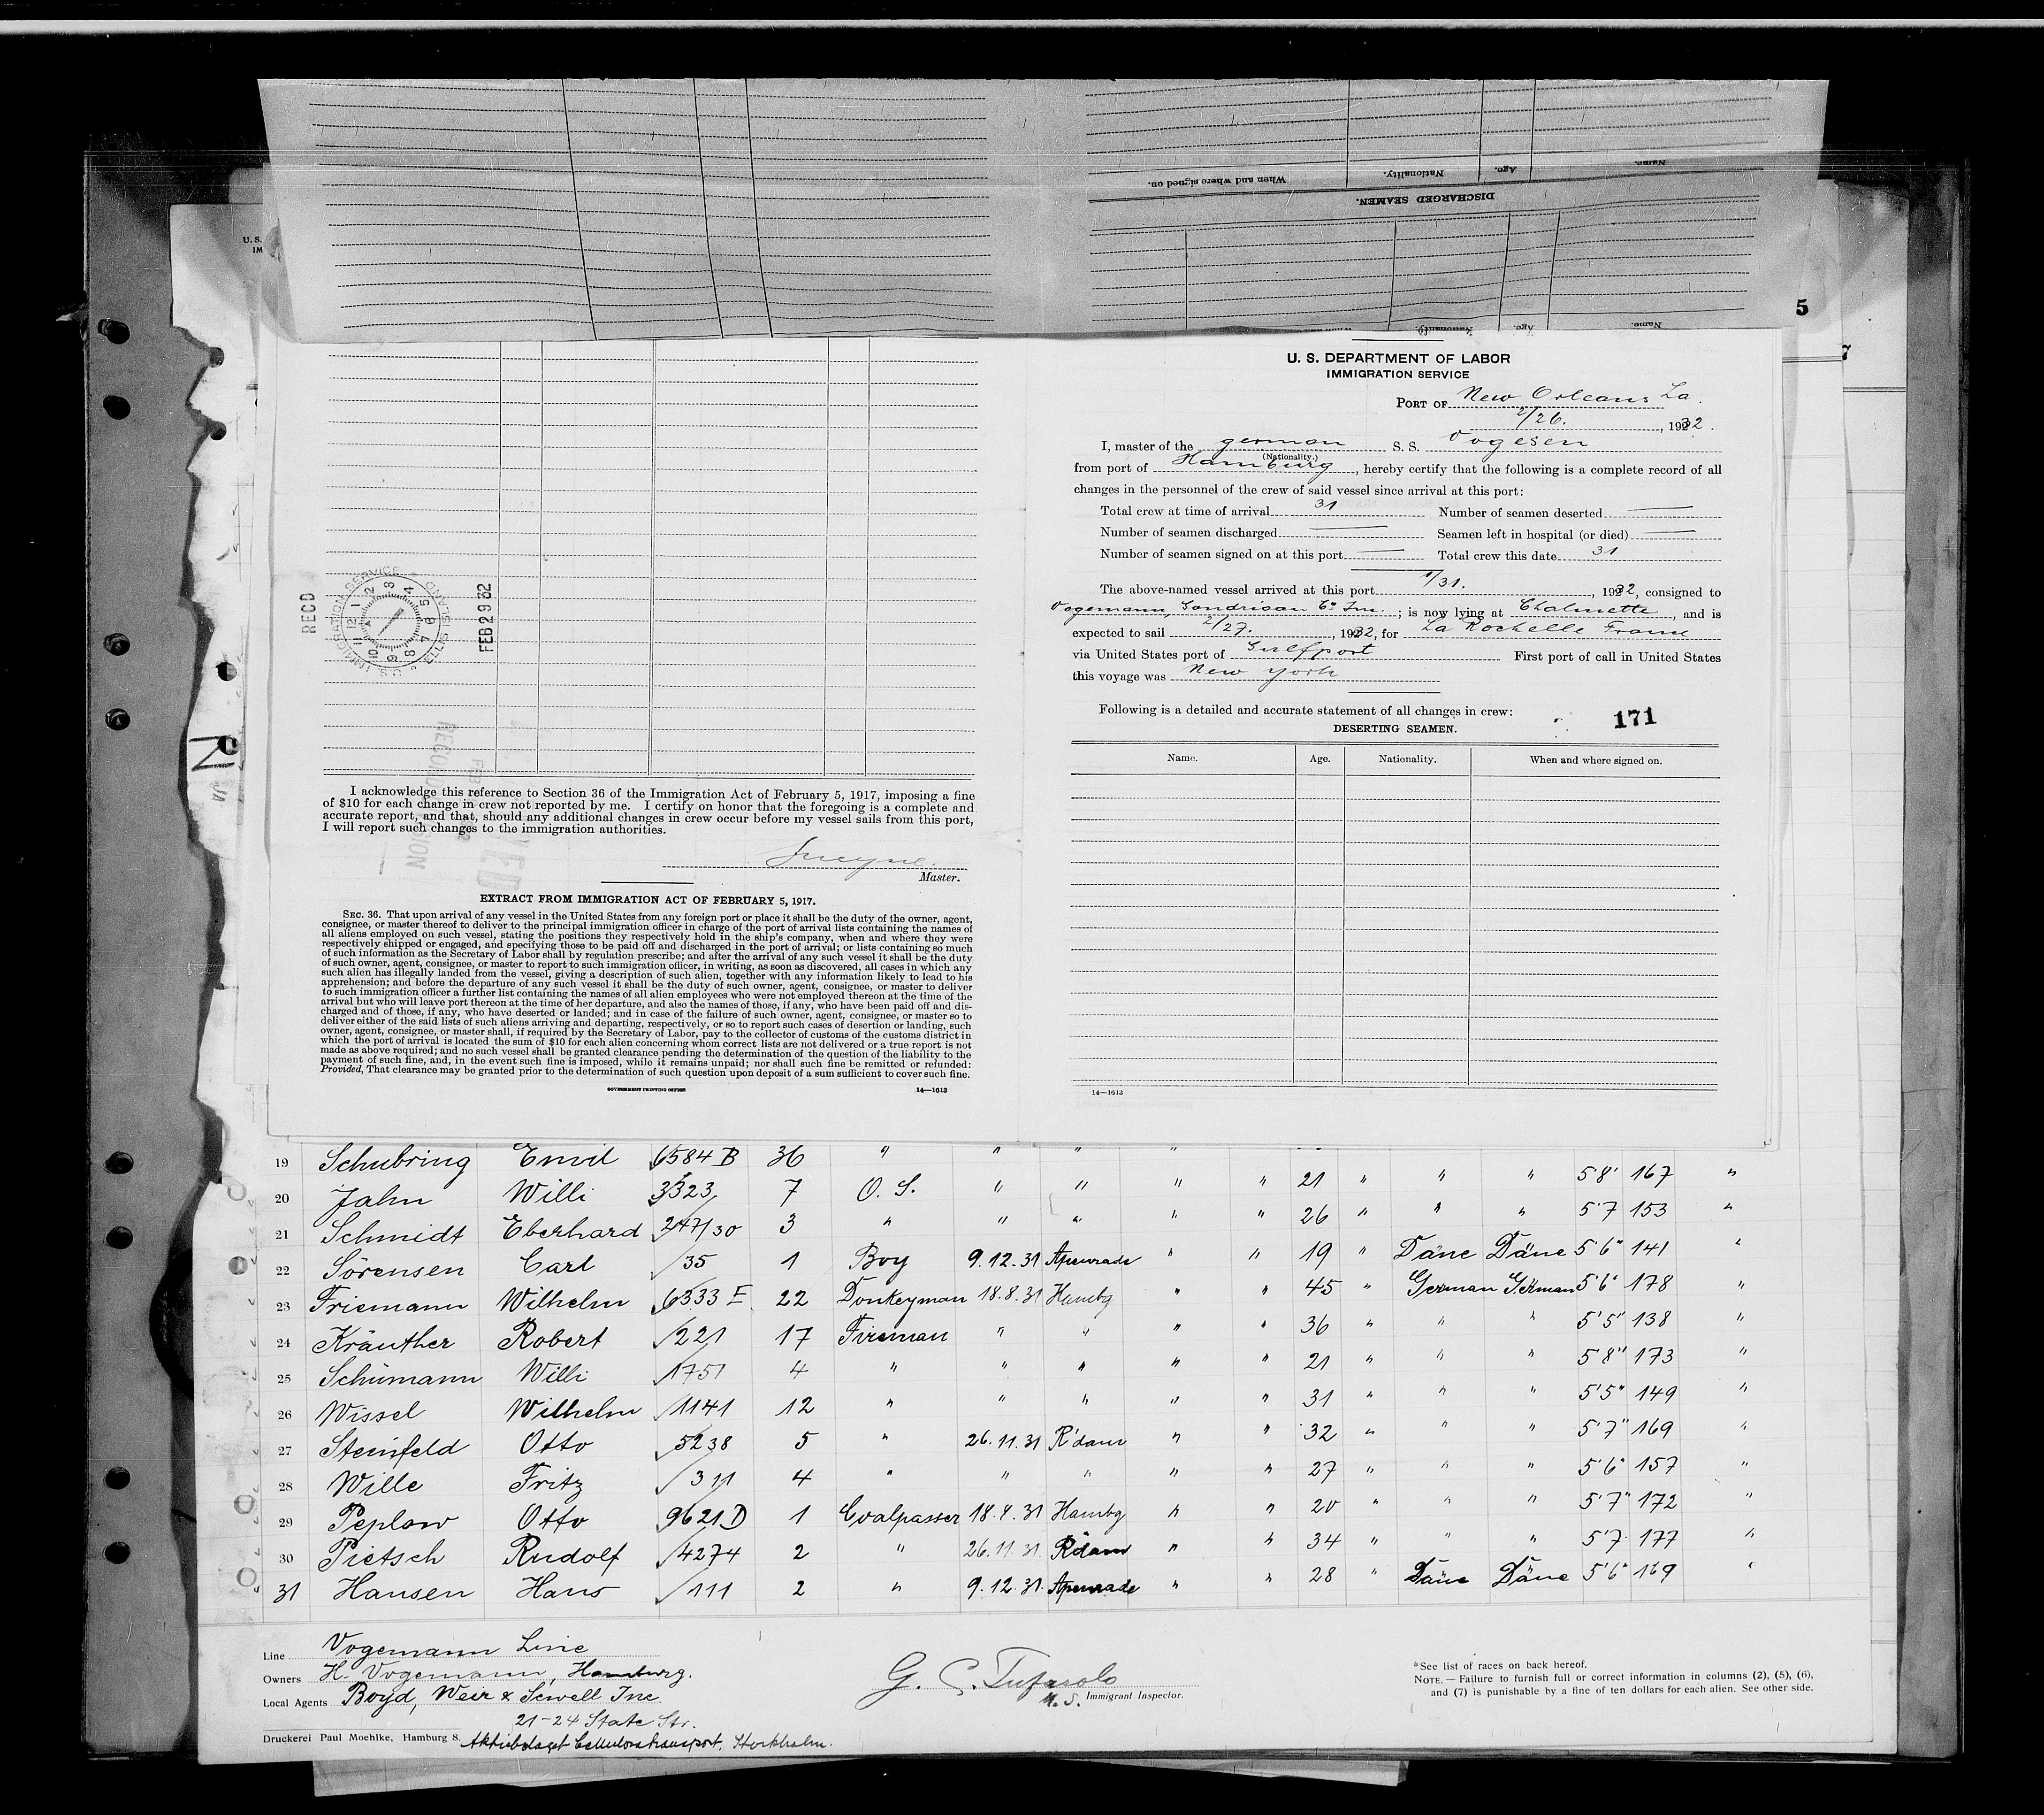 U. S.
IM
When and where signed on.
Nationality.
Age.
Name.
DISCHARGED SEAMEN.
Nationality.
Age.
Name.
5
7
RECD
U. S. IMMIGRATION SERVICE ELLIS ISLAND
12 1 2 3 4 5 6 7 8 9 10 11
FEB 29 32
I acknowledge this reference to Section 36 of the Immigration Act of February 5, 1917, imposing a fine
of $10 for each change in crew not reported by me. I certify on honor that the foregoing is a complete and
accurate report, and that, should any additional changes in crew occur before my vessel sails from this port,
I will report such changes to the immigration authorities.
Master.
EXTRACT FROM IMMIGRATION ACT OF FEBRUARY 5, 1917.
SEC. 36. That upon arrival of any vessel in the United States from any foreign port or place it shall be the duty of the owner, agent,
consignee, or master thereof to deliver to the principal immigration officer in charge of the port of arrival lists containing the names of
all aliens employed on such vessel, stating the positions they respectively hold in the ship's company, when and where they were
respectively shipped or engaged, and specifying those to be paid off and discharged in the port of arrival; or lists containing so much
of such information as the Secretary of Labor shall by regulation prescribe; and after the arrival of any such vessel it shall be the duty
of such owner, agent, consignee, or master to report to such immigration officer, in writing, as soon as discovered, all cases in which any
such alien has illegally landed from the vessel, giving a description of such alien, together with any information likely to lead to his
apprehension; and before the departure of any such vessel it shall be the duty of such owner, agent, consignee, or master to deliver
to such immigration officer a further list containing the names of all alien employees who were not employed thereon at the time of the
arrival but who will leave port thereon at the time of her departure, and also the names of those, if any, who have been paid off and dis-
charged and of those, if any, who have deserted or landed; and in case of the failure of such owner, agent, consignee, or master so to
deliver either of the said lists of such aliens arriving and departing, respectively, or so to report such cases of desertion or landing, such
owner, agent, consignee, or master shall, if required by the Secretary of Labor, pay to the collector of customs of the customs district in
which the port of arrival is located the sum of $10 for each alien concerning whom correct lists are not delivered or a true report is not
made as above required; and no such vessel shall be granted clearance pending the determination of the question of the liability to the
payment of such fine, and, in the event such fine is imposed, while it remains unpaid; nor shall such fine be remitted or refunded:
Provided, That clearance may be granted prior to the determination of such question upon deposit of a sum sufficient to cover such fine.
GOVERNMENT PRINTING OFFICE 14—1613
U. S. DEPARTMENT OF LABOR
IMMIGRATION SERVICE
PORT OF New Orleans La.
2/26. , 1932.
I, master of the german S. S. Vogesen
(Nationality.)
from port of Hamburg, hereby certify that the following is a complete record of all
changes in the personnel of the crew of said vessel since arrival at this port:
Total crew at time of arrival 31 Number of seamen deserted —
Number of seamen discharged — Seamen left in hospital (or died) —
Number of seamen signed on at this port — Total crew this date 31
The above-named vessel arrived at this port 1/31. , 1932, consigned to
Vogemann, Goudriaan Co Inc. ; is now lying at Chalmette, and is
expected to sail 2/27. , 1932, for La Rochelle France
via United States port of Gulfport First port of call in United States
this voyage was New York
Following is a detailed and accurate statement of all changes in crew:
171
DESERTING SEAMEN.
Name. Age. Nationality. When and where signed on.
14—1613
19 Schubring Emil 6584 B 36 " " " "
20 Jahn Willi 3323 7 O. S. " " " " 21 " " " 5'8" 167 "
21 Schmidt Eberhard 247/30 3 " " " " " 26 " " " 5'7 153 "
22 Sörensen Carl 35 1 Boy 9.12.31 Apenrade " " 19 " Däne Däne 5'6" 141 "
23 Friemann Wilhelm 6333 E 22 Donkeyman 18.8.31 Hambg " " 45 " German German 5'6" 178 "
24 Kräuther Robert 221 17 Fireman " " " " 36 " " " 5'5" 138 "
25 Schümann Willi 1751 4 " " " " " 21 " " " 5'8" 173 "
26 Wissel Wilhelm 1141 12 " " " " " 31 " " " 5'5" 149 "
27 Steinfeld Otto 5238 5 " 26.11.31 R'dam " " 32 " " " 5'7" 169 "
28 Wille Fritz 311 4 " " " " " 27 " " " 5'6" 157 "
29 Peplow Otto 9621 D 1 Coalpasser 18.8.31 Hambg " " 20 " " " 5'7" 172 "
30 Pietsch Rudolf 4274 2 " 26.11.31. R'dam " " 34 " " " 5'7 177 "
31 Hansen Hans 111 2 " 9.12.31. Apenrade " " 28 " Däne Däne 5'6" 169 "
Line Vogemann Line
Owners H. Vogemann, Hamburg.
Local Agents Boyd, Weir & Sewell Inc
21-24 State Str.
Druckerei Paul Moehlke, Hamburg 8. Aktiebolaget Cellulosatransport, Stockholm.
G. C. Tufarolo
U. S. Immigrant Inspector.
*See list of races on back hereof.
NOTE. — Failure to furnish full or correct information in columns (2), (5), (6),
and (7) is punishable by a fine of ten dollars for each alien. See other side.